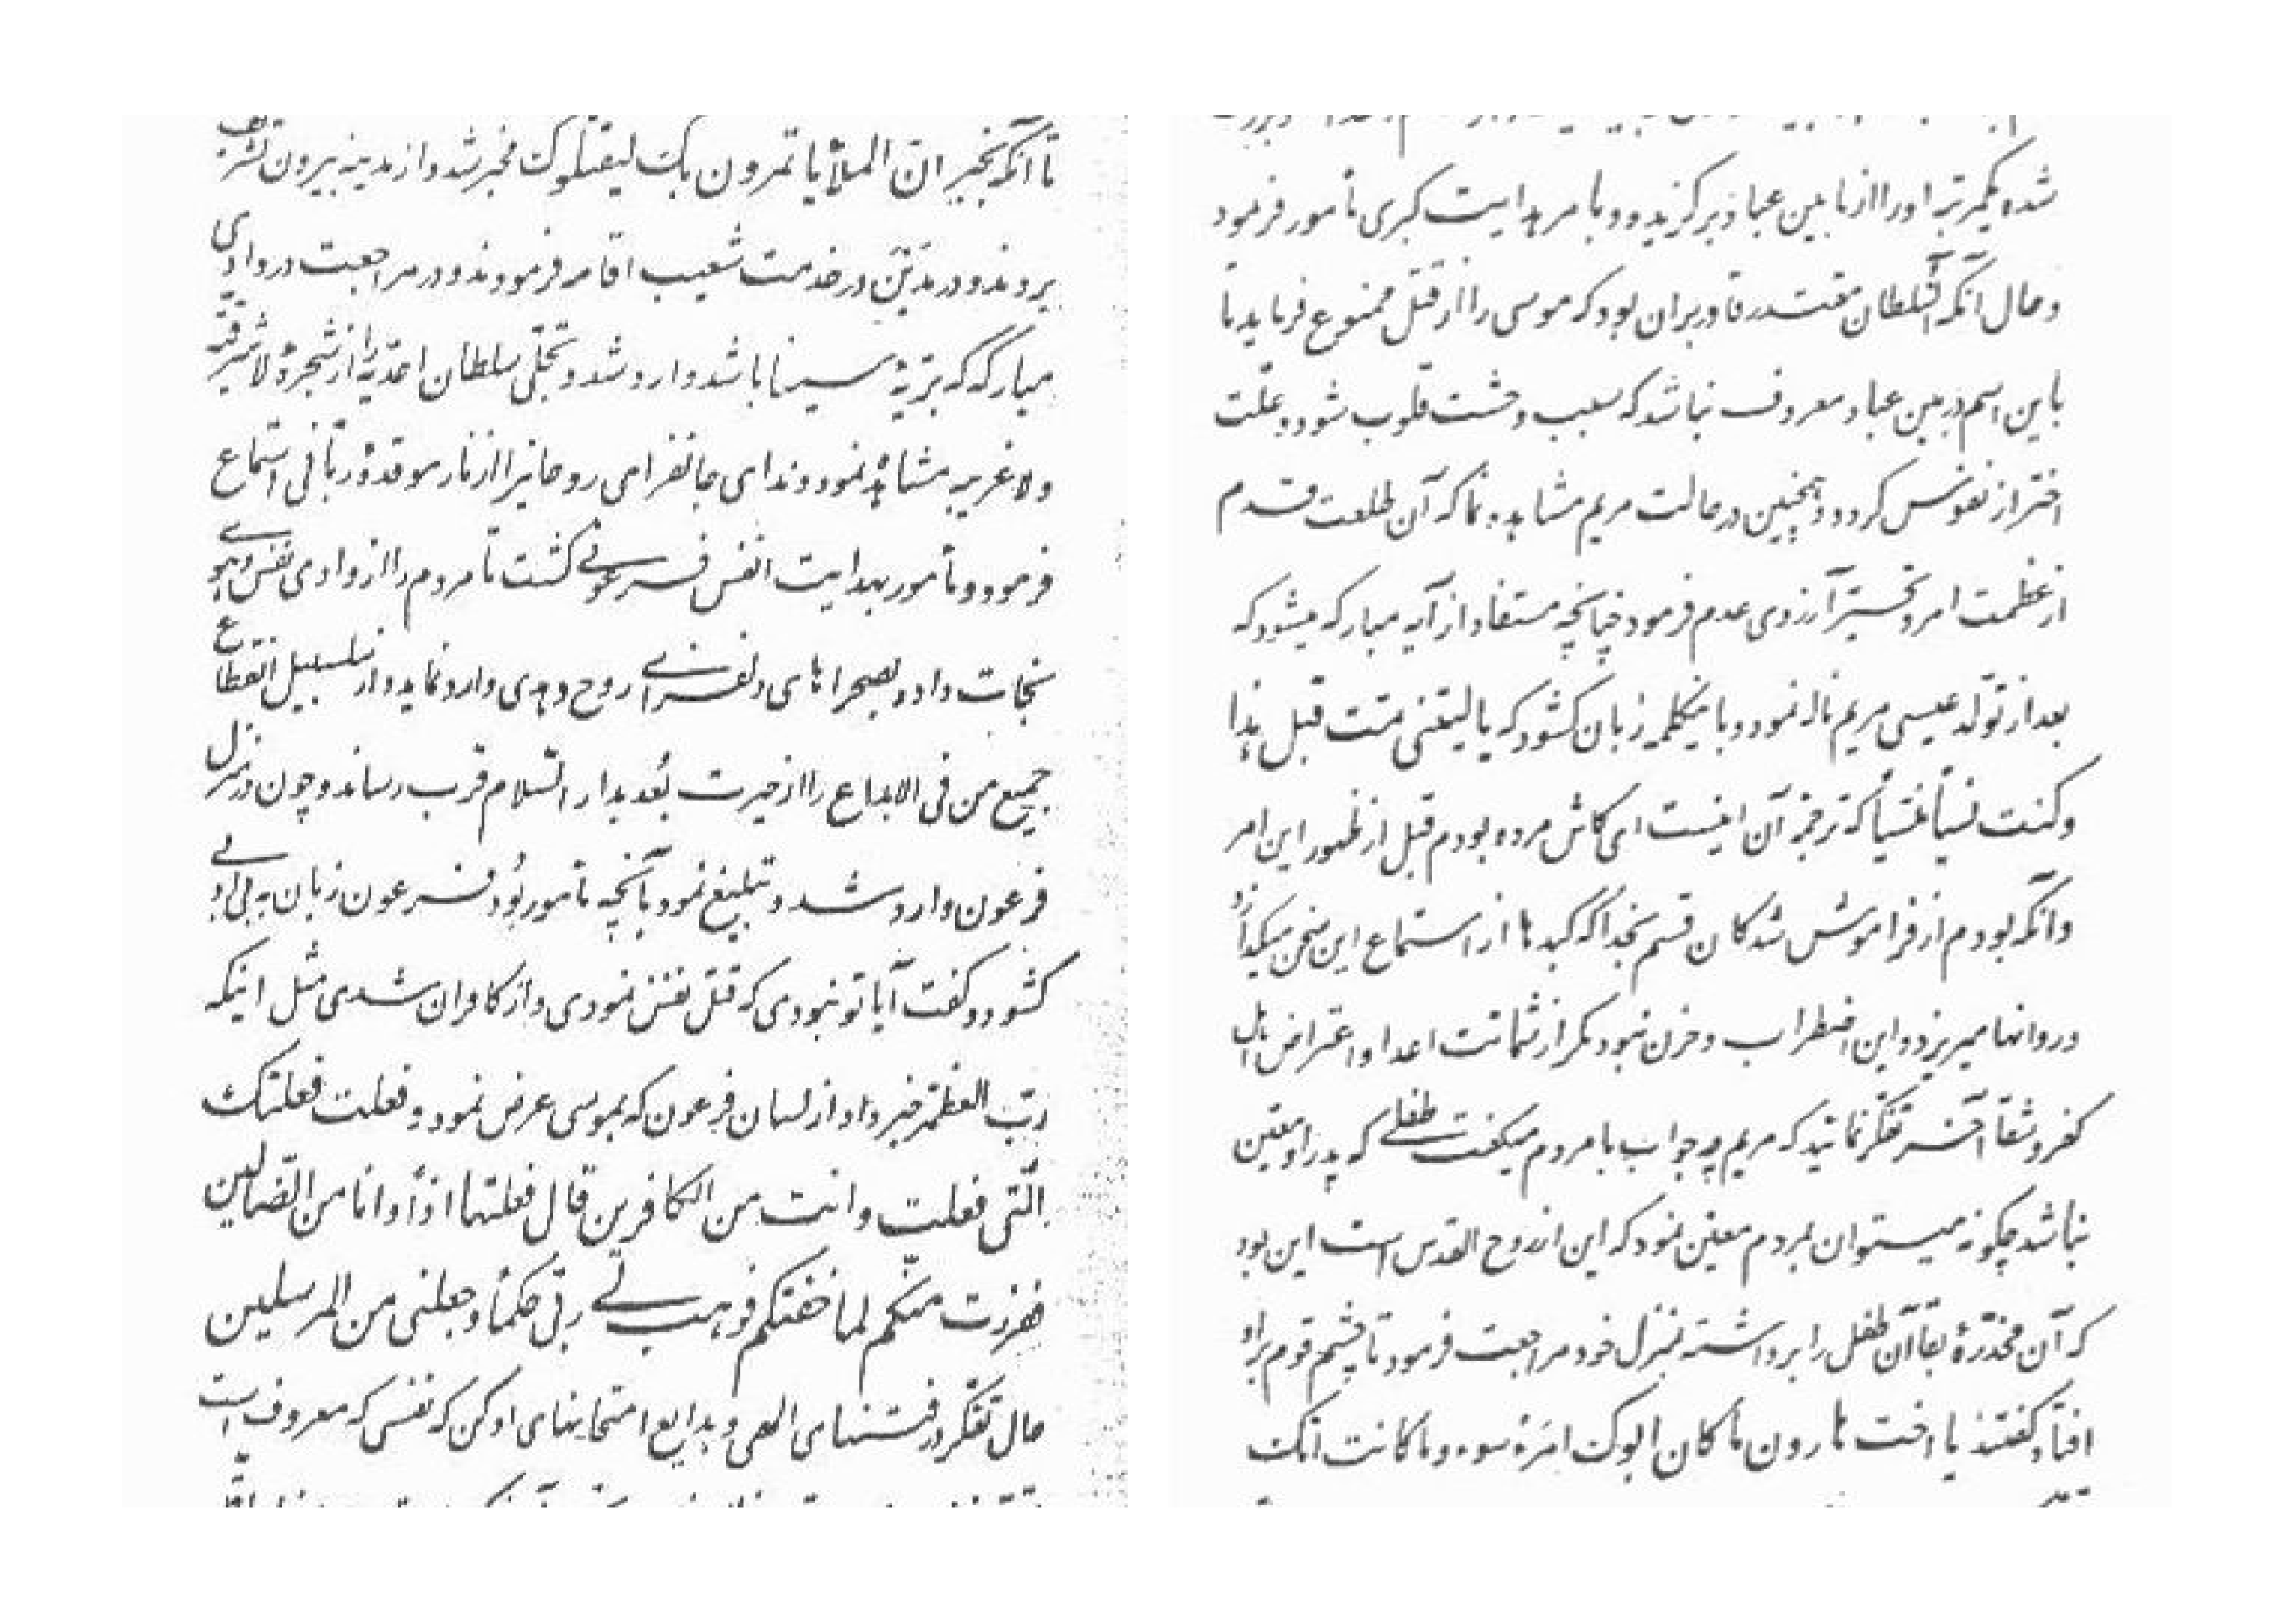 تا آنکه بخبر ان الملأ یاتمرون بک لیقتلوک مخبر شد و از مدینه بیرون تشریف
بردند و در مدین در خدمت شعیب اقامه فرمودند و در مراجعت در وادی
مبارکه که بریّهٔ سینا باشد وارد شد و تجلّی سلطان احدیّه را از شجرهٔ لا شرقیّه
ولا غربیه مشاهده نمود و ندای جانفزای روحانیرا از نار موقدهٔ ربّانی استماع
فرمود و مأمور بهدایت انفس فرعونی گشت تا مردم را از وادی نفس و هوی
نجات داده بصحراهای دلفزای روح و هدی وارد نماید و از سلسبیل انقطاع
جمیع من فی الابداع را از حیرت بُعد بدار السّلام قرب رساند و چون در منزل
فرعون وارد شد و تبلیغ نمود بآنچه مأمور بود فرعون زبان به بی ادبی
گشود و گفت آیا تو نبودی که قتل نفس نمودی و از کافران شدی مثل اینکه
ربّ العظمة خبر داد از لسان فرعون که بموسی عرض نمود و فعلت فعلتک
الّتی فعلت و انت من الکافرین قال فعلتها اذاً و انا من الضّالین
ففررت منکم لما خفتکم فوهب لی ربّی حکماً و جعلنی من المرسلین
حال تفکّر در فتنهای الهی و بدایع امتحانهای او کن که نفسی که معروف است
شده یکمرتبه او را از ما بین عباد برگزیده و بامر هدایت کبری مأمور فرمود
و حال آنکه آنسلطان مقتدر قادر بر آن بود که موسی را از قتل ممنوع فرماید تا
باین اسم در بین عباد معروف نباشد که سبب وحشت قلوب شود و علّت
احتراز نفوس گردد و همچنین در حالت مریم مشاهده نما که آن طلعت قدم
از عظمت امر و تحیّر آرزوی عدم فرمود چنانچه مستفاد از آیه مبارکه میشود که
بعد از تولّد عیسی مریم ناله نمود و باینکلمه زبان گشود که یا لیتنی متّ قبل هذا
وکنت نسیاً منسیّاً که ترجمهٔ آن اینست ای کاش مرده بودم قبل از ظهور این امر
و آنکه بودم از فراموش شدگان قسم بخدا که کبدها از استماع این سخن میگدازد
و روانها میریزد و این اضطراب و حزن نبود مگر از شماتت اعدا و اعتراض اهل
کفر و شقا آخر تفکّر نمائید که مریم چه جواب با مردم میگفت طفلی که پدر او معیّن
نباشد چگونه میتوان بمردم معیّن نمود که این از روح القدس است این بود
که آن مخدّرهٔ بقا آن طفل را برداشته بمنزل خود مراجعت فرمود تا چشم قوم بر او
افتاد گفتند یا اخت هارون ما کان ابوک امرء سوء و ما کانت امّک